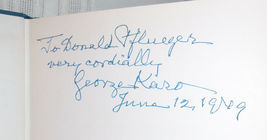 To Donald Pflueger
very cordially
George Karo
June 12, 1959